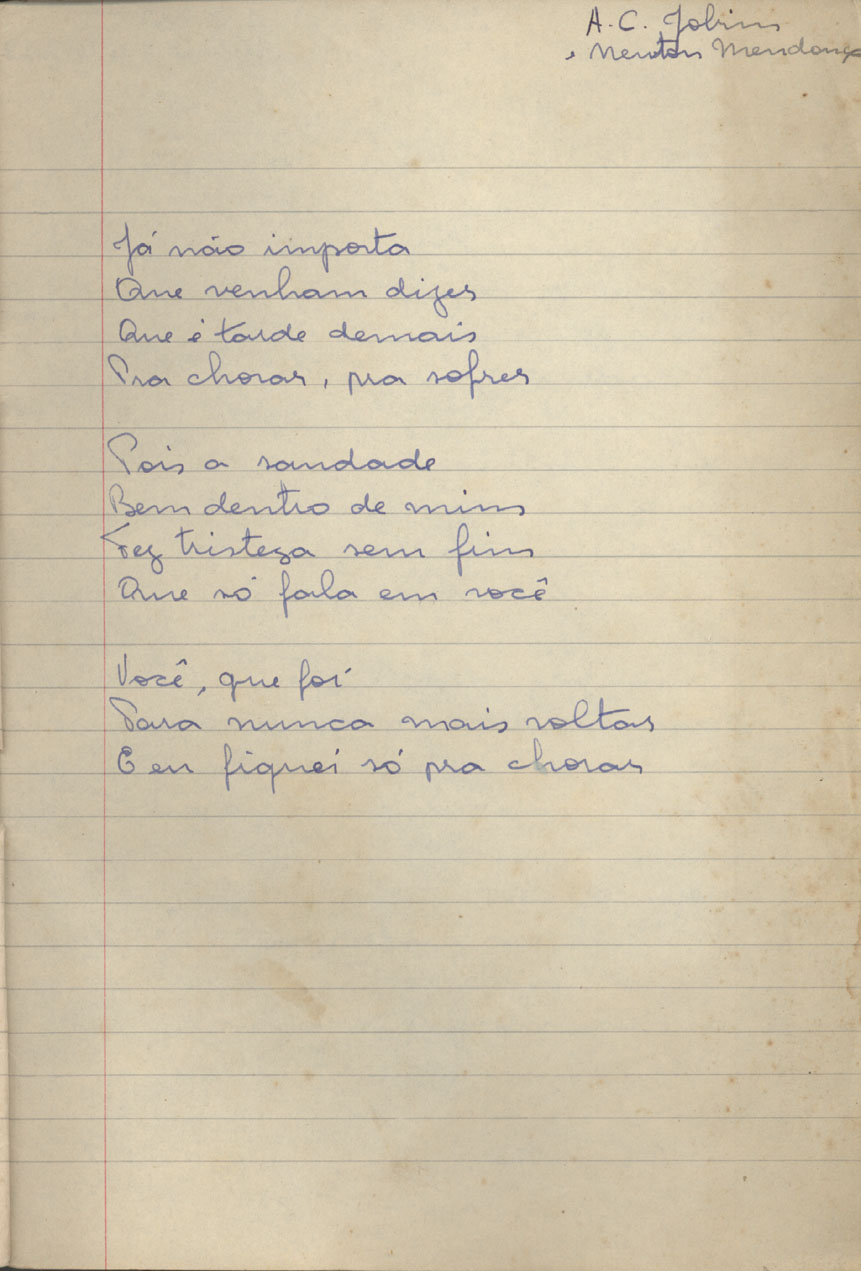 A. C. Jobim
e Newton Mendonça
Já não importa
Que venham dizer
Que é tarde demais
Pra chorar, pra sofrer
Pois a saudade
Bem dentro de mim
Fez tristeza sem fim
Que só fala em você
Você, que foi
Para nunca mais voltar
E eu fiquei só pra chorar